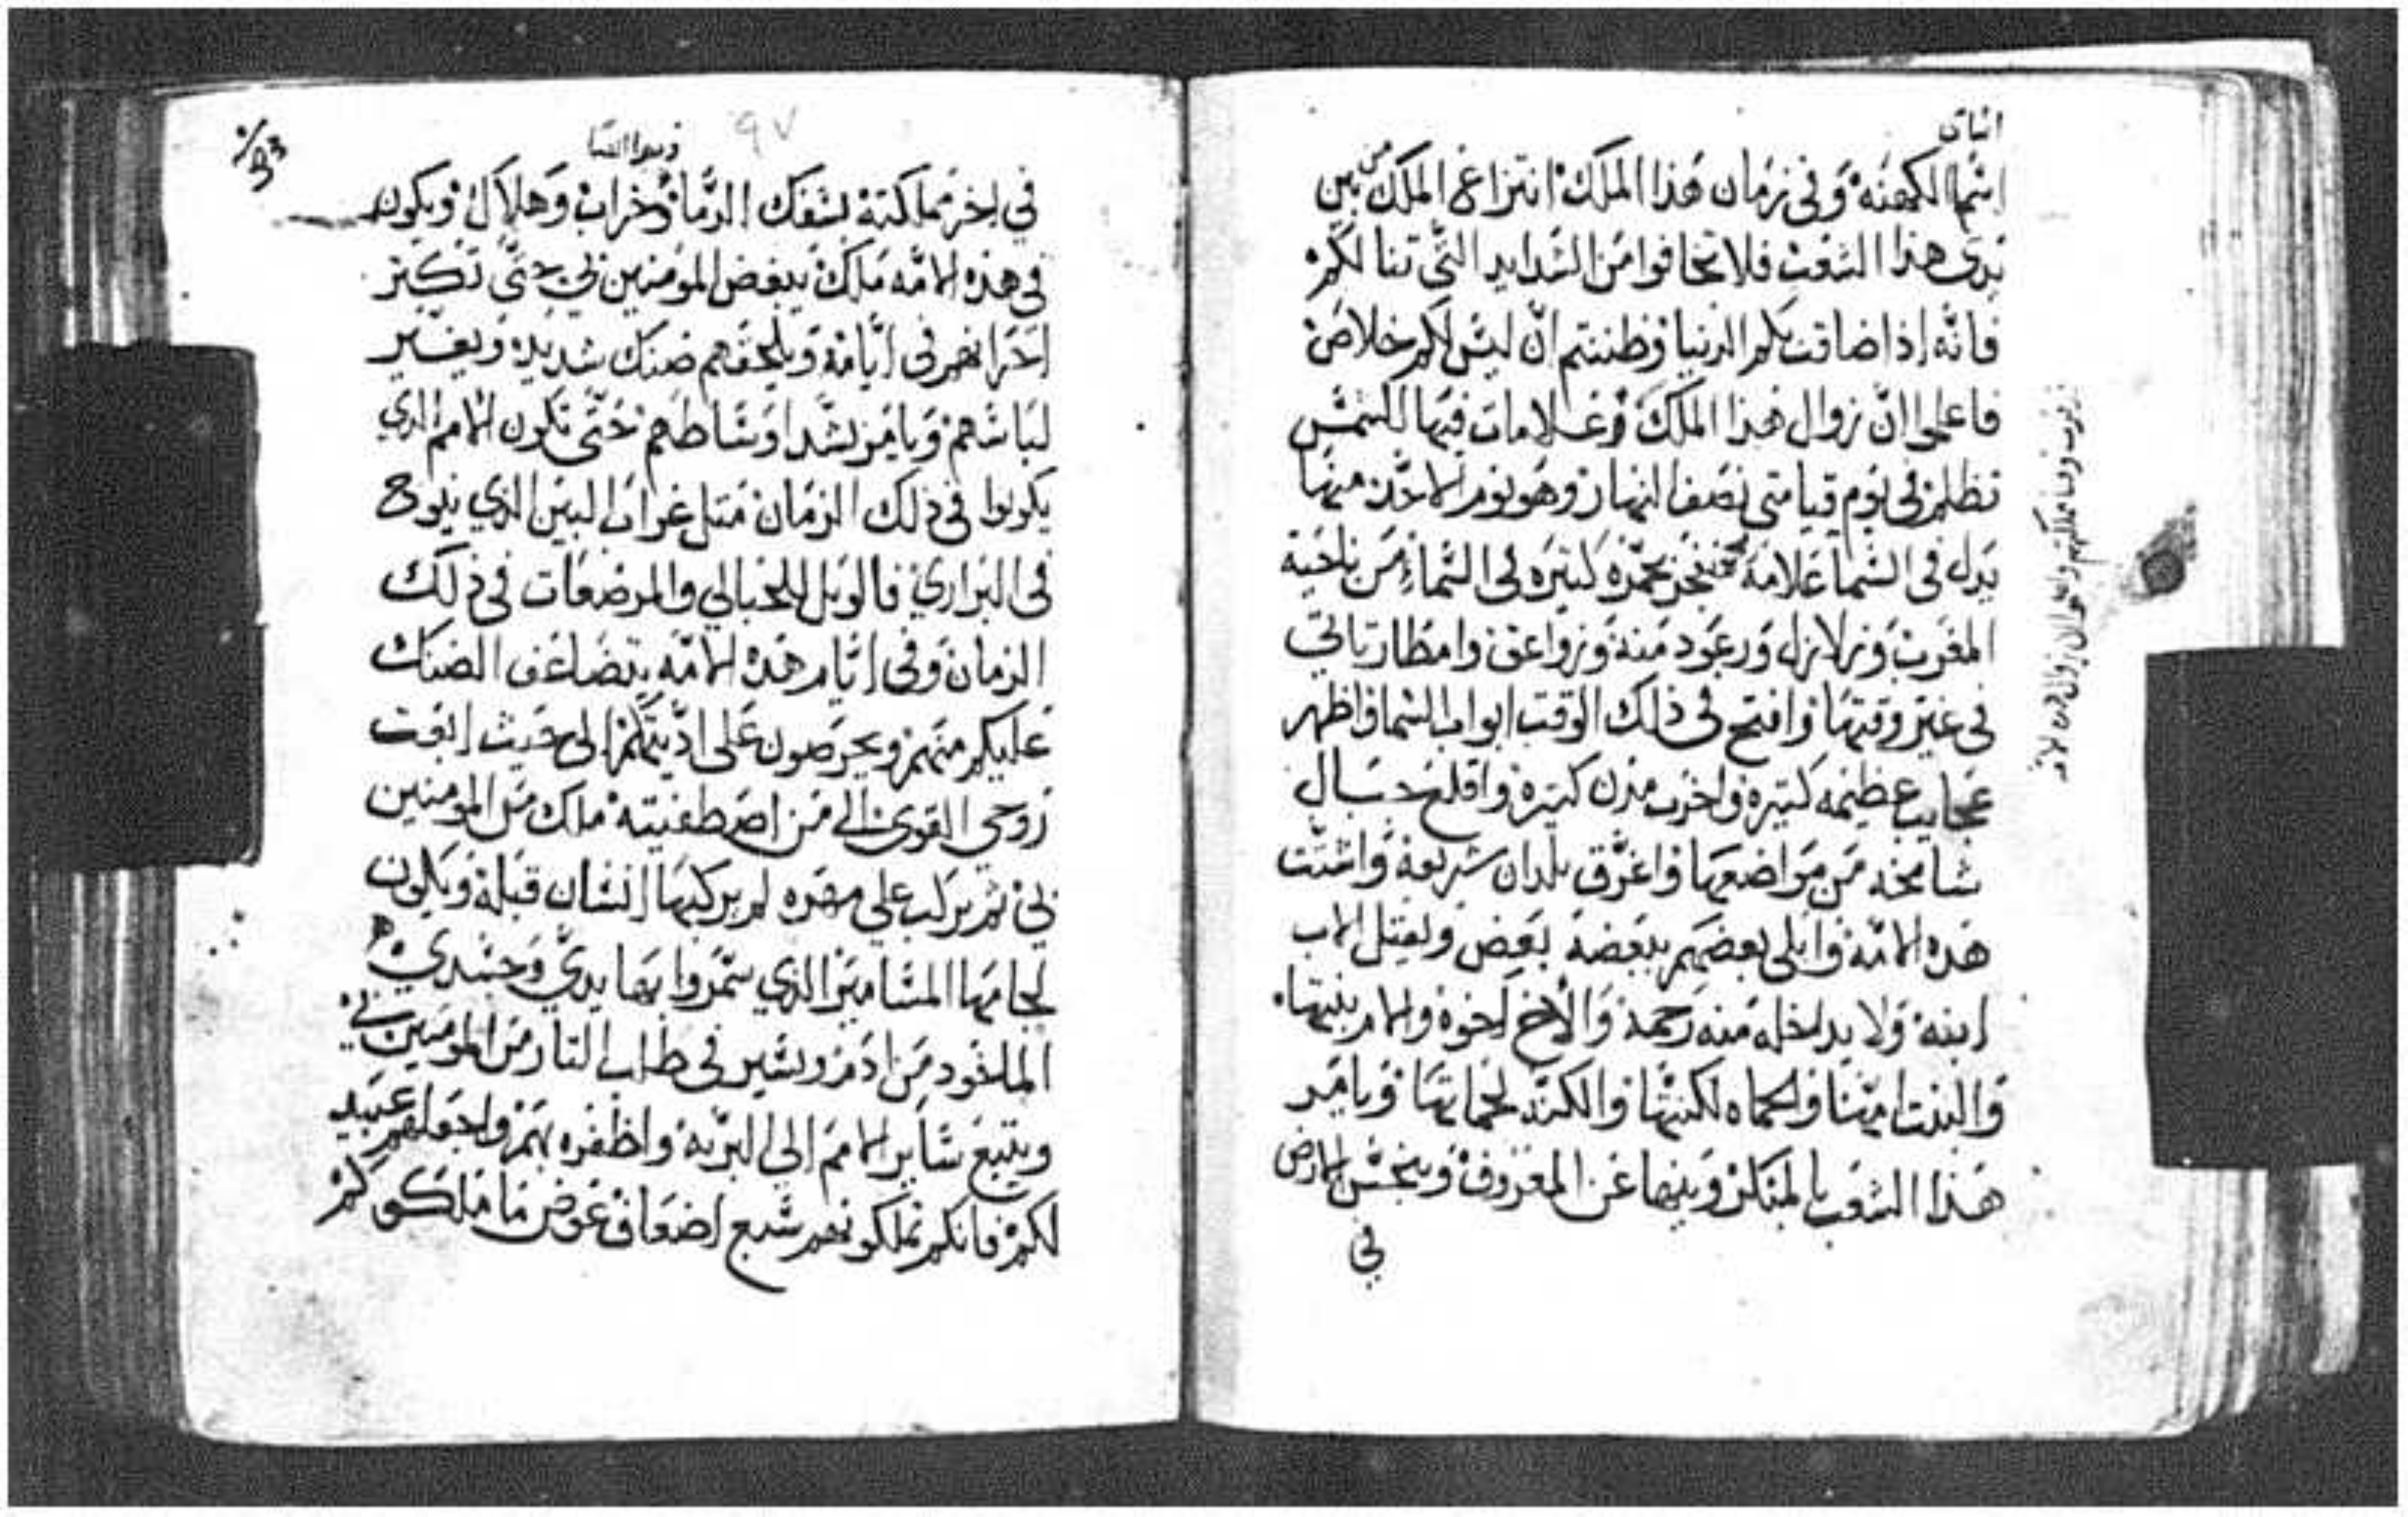 اسما الكهنه وفى زمان هذا الملك انتزاع الملك من بين
يدى هذا الشعب فلا تخافوا من الشدايد التى تنالكم
فانه اذا ضاقت بكم الدنيا وظننتم ان ليس لكم خلاص
فاعلموا ان زوال هذا الملك وعلامات فيها الشمس
تظلم فى يوم قيامتى نصف النهار وهو يوم الاحد منها
يدل فى السما علامة بحمره كتيره فى السماء من ناحية
المغرب وزلازل ورعود منه وزواعق وامطار تاتى
فى غير وقتها وافتح فى ذلك الوقت ابواب السما واظهر
عجايب عظيمه كتيره واخرب مدن كتيره واقلع جبال
شامخه من مواضعها واغرق بلدان سريعة واشتت
هذه الامة وابلى بعضهم ببعضة بعض ويقتل الاب
ابنة ولا يدخله منه رحمة والاخ لخوة والام بنيتها
والبنت امها والحماه لكنتها والكنة لحماتها ويامر
هذا الشعب بالمنكر وينها عن المعروف وينجس الارض
في
97
في اخر مملكتة لسفك الدما وخراب وهلاك ويكون
فى هذه الامه ملك يبغض المومنين بي حتي تكتر
احزانهم فى ايامة ويلحقهم ضنك شديد ويغير
لباسهم ويامر بشد اوساطهم حتى تكون الامم الذي
يكونوا فى ذلك الزمان متل غراب البين الذي ينوح
فى البراري فالويل للحبالي والمرضعات فى ذلك
الزمان وفى ايام هذه الامه يتضاعف الضنك
عليكم منهم ويحرصون على اديتكم الى حيث ابعت
روحي القوى الى من اصطفيته ملك من المومنين
بي ثم يركب علي مهره لم يركبها انسان قبلة ويكون
لجامها المسامير الذي سمروا بها يدي وجسدي
الماخود من ادم ويسير فى طلب التار من المومنين بي
ويتبع ساير الامم الي البرية واظفره بهم واجعلهم عبيد
لكم فانكم تملكونهم سبع اضعاف عوض ما ملكوكم